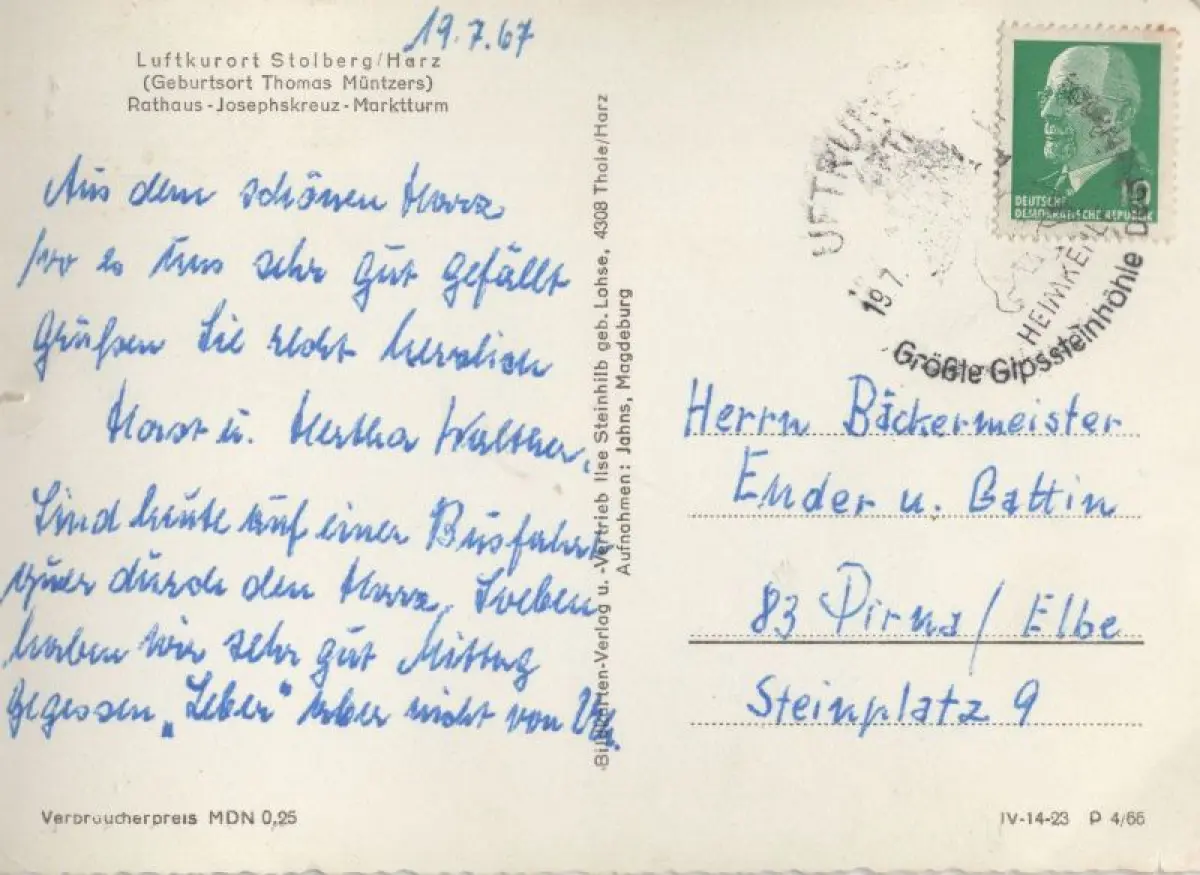 19.7.67
Luftkurort Stolberg/Harz
(Geburtsort Thomas Müntzers)
Rathaus - Josephskreuz - Marktturm
Aus dem schönen Harz
wo es uns sehr gut gefällt
grüßen Sie recht herzlich
Horst u. Hertha Walther.
Sind heute auf einer Busfahrt
quer durch den Harz. Soeben
haben wir sehr gut Mittag
gegessen „Leber" aber nicht von
Bildkarten-Verlag u. -Vertrieb Ilse Steinhilb geb. Lohse, 4308 Thale/Harz
Aufnahmen: Jahns, Magdeburg
10
DEUTSCHE
DEMOKRATISCHE REPUBLIK
UFTRUN
19.7.
HEIMKEHL
Größte Gipssteinhöhle
Herrn Bäckermeister
Ender u. Gattin
83 Pirna / Elbe
Steinplatz 9
Verbraucherpreis MDN 0,25
IV-14-23 P 4/66